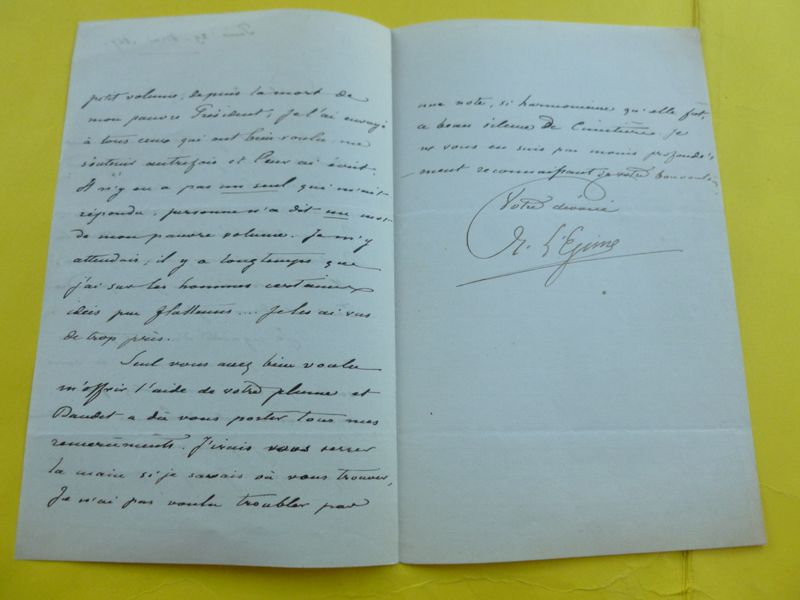 petit volume, depuis la mort de
mon pauvre Président, je l'ai envoyé
à tous ceux qui ont bien voulu me
soutenir autrefois et leur ai écrit.
Il n'y en a pas un seul qui m'ait
répondu, personne n'a dit un mot
de mon pauvre volume. Je m'y
attendais ; il y a longtemps que
j'ai sur les hommes certaines
idées peu flatteuses... Je les ai vus
de trop près.
Seul vous avez bien voulu
m'offrir l'aide de votre plume et
Daudet a dû vous porter tous mes
remerciments. J'irais vous serrer
la main si je savais où vous trouver.
Je n'ai pas voulu troubler par
une note, si harmonieuse qu'elle fut,
ce beau silence de Cimetière. Je
ne vous en suis pas moins profondé-
ment reconnaissant de votre bon vouloir.
Votre dévoué